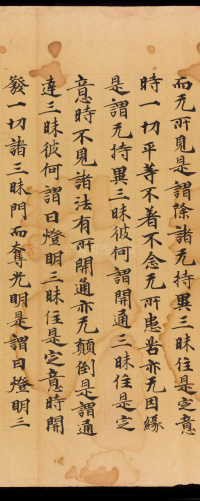 而无所見是謂除諸无持異三昧住是定意
時一切平等不著不念无所患苦亦无因緣
是謂无持異三昧彼何謂開通三昧住是定
意時不見諸法有所開通亦无顛倒是謂通
達三昧彼何謂曰燈明三昧住是定意時開
發一切諸三昧門而奪光明是謂曰燈明三